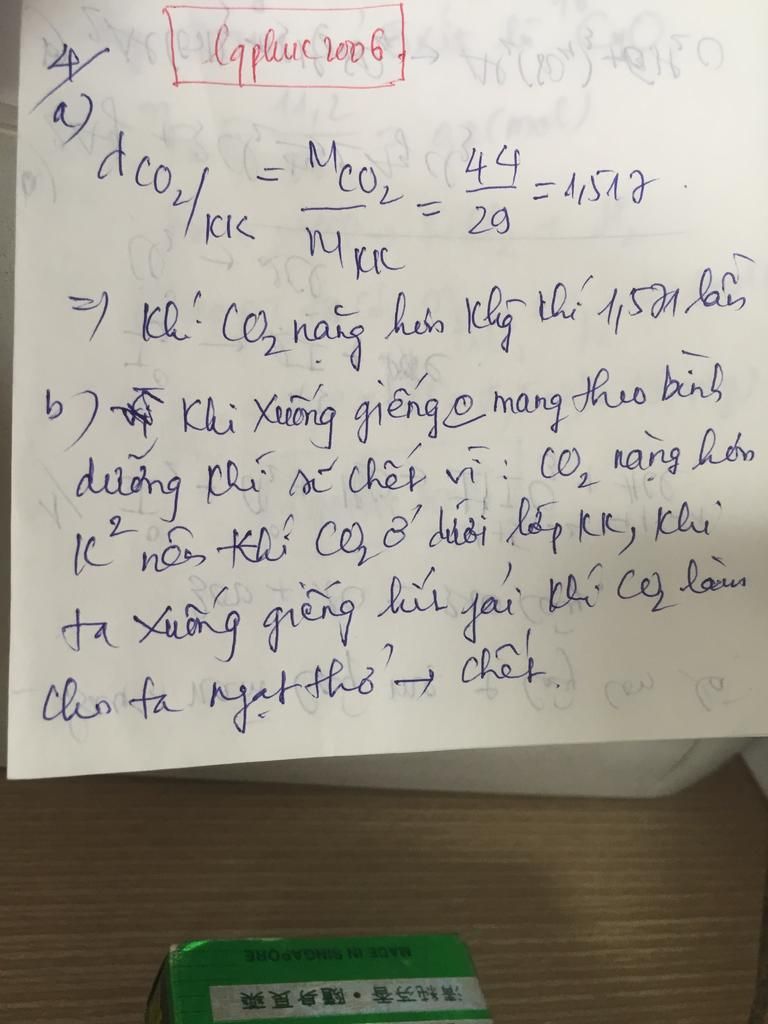 lqphuc2006
4/
a)
dCO₂/KK = MCO₂/MKK = 44/29 = 1,517.
=> Khí CO₂ nặng hơn khg khí 1,571 lần
b) Khi xuống giếng mang theo bình
dưỡng khí sẽ chết vì: CO₂ nặng hơn
K² nên khí CO₂ ở dưới lớp KK, khi
ta xuống giếng hít phải khí CO₂ làm
cho ta ngạt thở → chết.
MADE IN SINGAPORE